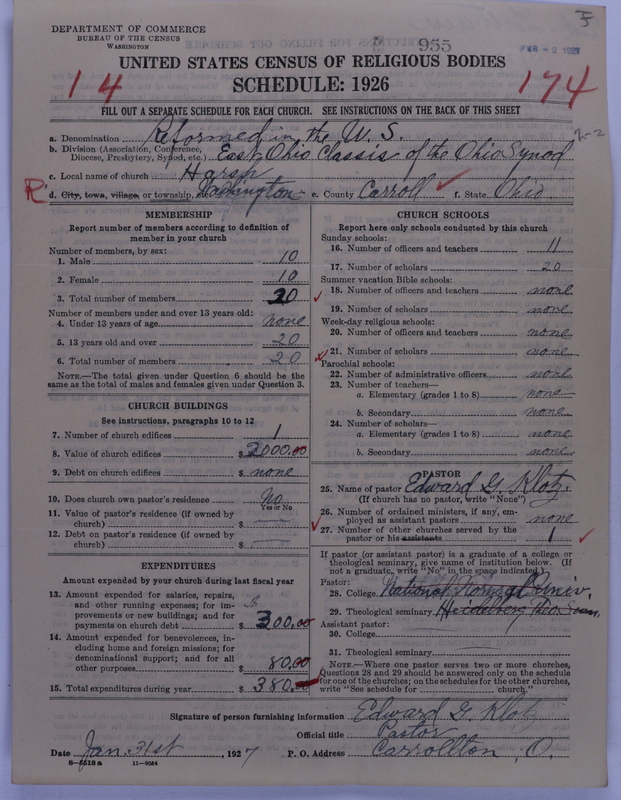 DEPARTMENT OF COMMERCE
BUREAU OF THE CENSUS
WASHINGTON
955
FEB -2 1927
UNITED STATES CENSUS OF RELIGIOUS BODIES
14 SCHEDULE: 1926 174
FILL OUT A SEPARATE SCHEDULE FOR EACH CHURCH. SEE INSTRUCTIONS ON THE BACK OF THIS SHEET
2-2
a. Denomination Reformed in the U. S.
b. Division (Association, Conference, Diocese, Presbytery, Synod, etc.) East Ohio Classis of the Ohio Synod
c. Local name of church Harsh
R d. City, town, village, or township, etc. Washington e. County Carroll ✓ f. State Ohio
MEMBERSHIP
Report number of members according to definition of
member in your church
Number of members, by sex:
1. Male 10
2. Female 10
3. Total number of members 20
Number of members under and over 13 years old:
4. Under 13 years of age none
5. 13 years old and over 20
6. Total number of members 20
NOTE.—The total given under Question 6 should be the
same as the total of males and females given under Question 3.
CHURCH BUILDINGS
See instructions, paragraphs 10 to 12
7. Number of church edifices 1
8. Value of church edifices $2000.00
9. Debt on church edifices $ none
10. Does church own pastor's residence No
Yes or No
11. Value of pastor's residence (if owned by
church) $ —
12. Debt on pastor's residence (if owned by
church) $ —
EXPENDITURES
Amount expended by your church during last fiscal year
13. Amount expended for salaries, repairs,
and other running expenses; for im-
provements or new buildings; and for
payments on church debt $ 300.00
14. Amount expended for benevolences, in-
cluding home and foreign missions; for
denominational support; and for all
other purposes 80.00
15. Total expenditures during year $ 380.00
CHURCH SCHOOLS
Report here only schools conducted by this church
Sunday schools:
16. Number of officers and teachers 11
17. Number of scholars 20
Summer vacation Bible schools:
18. Number of officers and teachers none
19. Number of scholars none
Week-day religious schools:
20. Number of officers and teachers none
21. Number of scholars none
Parochial schools:
22. Number of administrative officers none
23. Number of teachers—
a. Elementary (grades 1 to 8) none
b. Secondary none
24. Number of scholars—
a. Elementary (grades 1 to 8) none
b. Secondary none
PASTOR
25. Name of pastor Edward G. Klotz
(If church has no pastor, write "None")
26. Number of ordained ministers, if any, em-
ployed as assistant pastors none
27. Number of other churches served by the
pastor or his assistants 1 ✓
If pastor (or assistant pastor) is a graduate of a college or
theological seminary, give name of institution below. (If
not a graduate, write "No" in the space indicated)
Pastor:
28. College National Normal Univ.
29. Theological seminary Heidelberg Theo. Sem.
Assistant pastor:
30. College
31. Theological seminary
NOTE.—Where one pastor serves two or more churches,
Questions 28 and 29 should be answered only on the schedule
for one of the churches; on the schedules for the other churches,
write "See schedule for church."
Signature of person furnishing information Edward G. Klotz
Official title Pastor
Date Jan. 31st, 1927 P. O. Address Carrollton, O.
8—5518a 11—9084